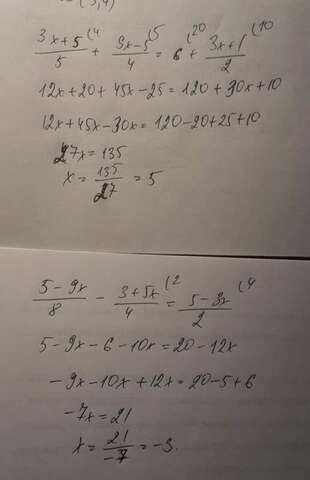 (3x+5)/5 (4 + (9x-5)/4 (5 = 6 (20 + (3x+1)/2 (10
12x+20+45x-25=120+30x+10
12x+45x-30x=120-20+25+10
27x=135
x=135/27=5
(5-9x)/8 - (3+5x)/4 (2 = (5-3x)/2 (4
5-9x-6-10x=20-12x
-9x-10x+12x=20-5+6
-7x=21
x=21/-7=-3.